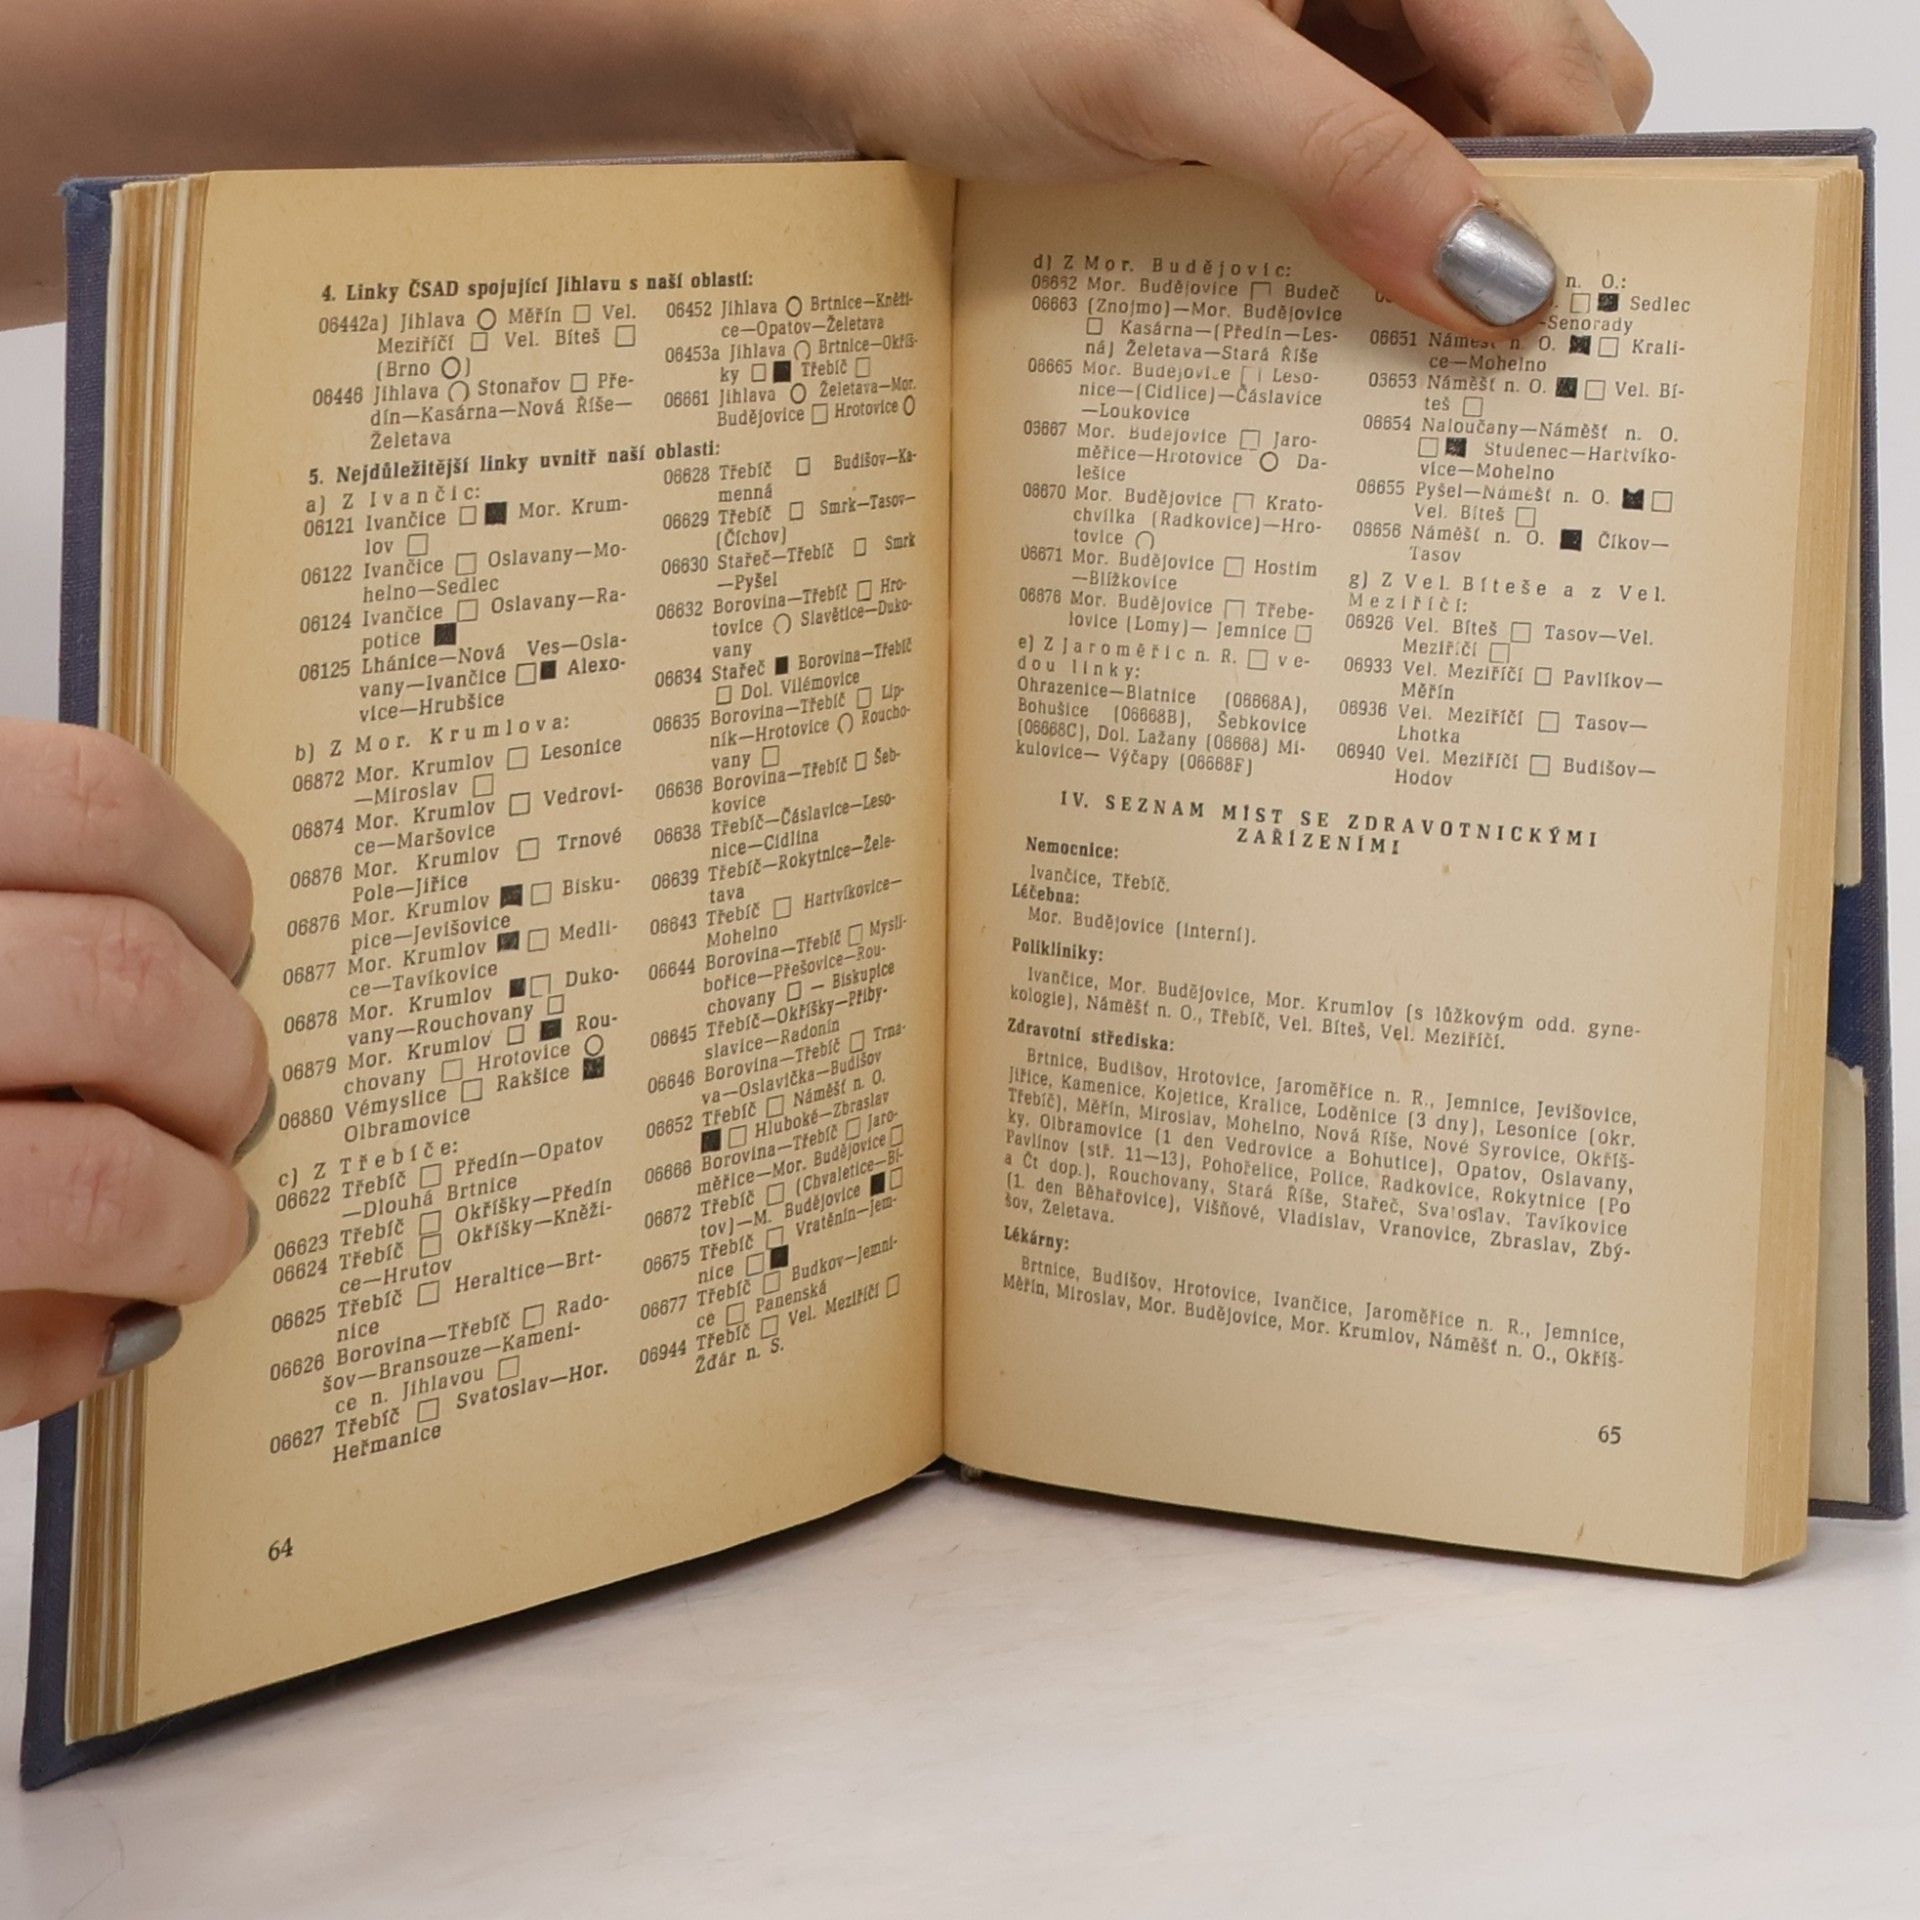 4. Linky ČSAD spojující Jihlavu s naší oblastí:
06442a) Jihlava ◯ Měřín □ Vel.
Meziříčí □ Vel. Bíteš □
(Brno ◯)
06446 Jihlava ◯ Stonařov □ Pře-
dín—Kasárna—Nová Říše—
Želetava
06452 Jihlava ◯ Brtnice—Kněži-
ce—Opatov—Želetava
06453a Jihlava ◯ Brtnice—Okříš-
ky □ ■ Třebíč □
06661 Jihlava ◯ Želetava—Mor.
Budějovice □ Hrotovice ◯
5. Nejdůležitější linky uvnitř naší oblasti:
a) Z Ivančic:
06121 Ivančice □ ■ Mor. Krum-
lov □
06122 Ivančice □ Oslavany—Mo-
helno—Sedlec
06124 Ivančice □ Oslavany—Ra-
potice ■
06125 Lhánice—Nová Ves—Osla-
vany—Ivančice □ ■ Alexo-
vice—Hrubšice
b) Z Mor. Krumlova:
06872 Mor. Krumlov □ Lesonice
—Miroslav □
06874 Mor. Krumlov □ Vedrovi-
ce—Maršovice
06876 Mor. Krumlov □ Trnové
Pole—Jiřice
06876 Mor. Krumlov ■ □ Bisku-
pice—Jevišovice
06877 Mor. Krumlov ■ □ Medli-
ce—Tavíkovice
06878 Mor. Krumlov ■ □ Duko-
vany—Rouchovany □
06879 Mor. Krumlov □ ■ Rou-
chovany □ Hrotovice ◯
06880 Vémyslice □ Rakšice ■
Olbramovice
c) Z Třebíče:
06622 Třebíč □ Předín—Opatov
—Dlouhá Brtnice
06623 Třebíč □ Okříšky—Předín
06624 Třebíč □ Okříšky—Kněži-
ce—Hrutov
06625 Třebíč □ Heraltice—Brt-
nice
06626 Borovina—Třebíč □ Rado-
šov—Bransouze—Kameni-
ce n. Jihlavou □
06627 Třebíč □ Svatoslav—Hor.
Heřmanice
06628 Třebíč □ Budišov—Ka-
menná
06629 Třebíč □ Smrk—Tasov—
(Číchov)
06630 Stařeč—Třebíč □ Smrk
—Pyšel
06632 Borovina—Třebíč □ Hro-
tovice ◯ Slavětice—Duko-
vany
06634 Stařeč ■ Borovina—Třebíč
□ Dol. Vilémovice
06635 Borovina—Třebíč □ Lip-
ník—Hrotovice ◯ Roucho-
vany □
06636 Borovina—Třebíč □ Šeb-
kovice
06638 Třebíč—Čáslavice—Leso-
nice—Cidlina
06639 Třebíč—Rokytnice—Žele-
tava
06643 Třebíč □ Hartvíkovice—
Mohelno
06644 Borovina—Třebíč □ Mysli-
bořice—Přešovice—Rou-
chovany □ — Biskupice
06645 Třebíč—Okříšky—Přiby-
slavice—Radonín
06646 Borovina—Třebíč □ Trna-
va—Oslavička—Budišov
06652 Třebíč □ Náměšť n. O.
■ □ Hluboké—Zbraslav
06666 Borovina—Třebíč □ Jaro-
měřice—Mor. Budějovice □
06672 Třebíč □ (Chvaletice—Bí-
tov)—M. Budějovice ■ □
06675 Třebíč □ Vratěnín—Jem-
nice □ ■
06677 Třebíč □ Budkov—Jemni-
ce □ Panenská
06944 Třebíč □ Vel. Meziříčí □
Žďár n. S.
64
d) Z Mor. Budějovic:
06662 Mor. Budějovice □ Budeč
06663 (Znojmo)—Mor. Budějovice
□ Kasárna—(Předín—Les-
ná) Želetava—Stará Říše
06665 Mor. Budějovice □ Leso-
nice—(Cidlice)—Čáslavice
—Loukovice
03667 Mor. Budějovice □ Jaro-
měřice—Hrotovice ◯ Da-
lešice
06670 Mor. Budějovice □ Krato-
chvilka (Radkovice)—Hro-
tovice ◯
06671 Mor. Budějovice □ Hostim
—Blížkovice
06676 Mor. Budějovice □ Třebe-
lovice (Lomy)— Jemnice □
e) Z Jaroměřic n. R. □ ve-
dou linky:
Ohrazenice—Blatnice (06668A),
Bohušice (06668B), Šebkovice
(06668C), Dol. Lažany (06668) Mi-
kulovice— Výčapy (06668F)
n. O.:
□ ■ Sedlec
—Senorady
06651 Náměšť n. O. ■ □ Krali-
ce—Mohelno
03653 Náměšť n. O. ■ □ Vel. Bí-
teš □
06654 Naloučany—Náměšť n. O.
□ ■ Studenec—Hartvíko-
vice—Mohelno
06655 Pyšel—Náměšť n. O. ■ □
Vel. Bíteš □
06656 Náměšť n. O. ■ Číkov—
Tasov
g) Z Vel. Bíteše a z Vel.
Meziříčí:
06926 Vel. Bíteš □ Tasov—Vel.
Meziříčí □
06933 Vel. Meziříčí □ Pavlíkov—
Měřín
06936 Vel. Meziříčí □ Tasov—
Lhotka
06940 Vel. Meziříčí □ Budišov—
Hodov
IV. SEZNAM MÍST SE ZDRAVOTNICKÝMI
ZAŘÍZENÍMI
Nemocnice:
Ivančice, Třebíč.
Léčebna:
Mor. Budějovice (interní).
Polikliniky:
Ivančice, Mor. Budějovice, Mor. Krumlov (s lůžkovým odd. gyne-
kologie), Náměšť n. O., Třebíč, Vel. Bíteš, Vel. Meziříčí.
Zdravotní střediska:
Brtnice, Budišov, Hrotovice, Jaroměřice n. R., Jemnice, Jevišovice,
Jiřice, Kamenice, Kojetice, Kralice, Loděnice (3 dny), Lesonice (okr.
Třebíč), Měřín, Miroslav, Mohelno, Nová Říše, Nové Syrovice, Okříš-
ky, Olbramovice (1 den Vedrovice a Bohutice), Opatov, Oslavany,
Pavlínov (stř. 11—13), Pohořelice, Police, Radkovice, Rokytnice (Po
a Čt dop.), Rouchovany, Stará Říše, Stařeč, Svatoslav, Tavíkovice
(1. den Běhařovice), Višňové, Vladislav, Vranovice, Zbraslav, Zbý-
šov, Želetava.
Lékárny:
Brtnice, Budišov, Hrotovice, Ivančice, Jaroměřice n. R., Jemnice,
Měřín, Miroslav, Mor. Budějovice, Mor. Krumlov, Náměšť n. O., Okříš-
65